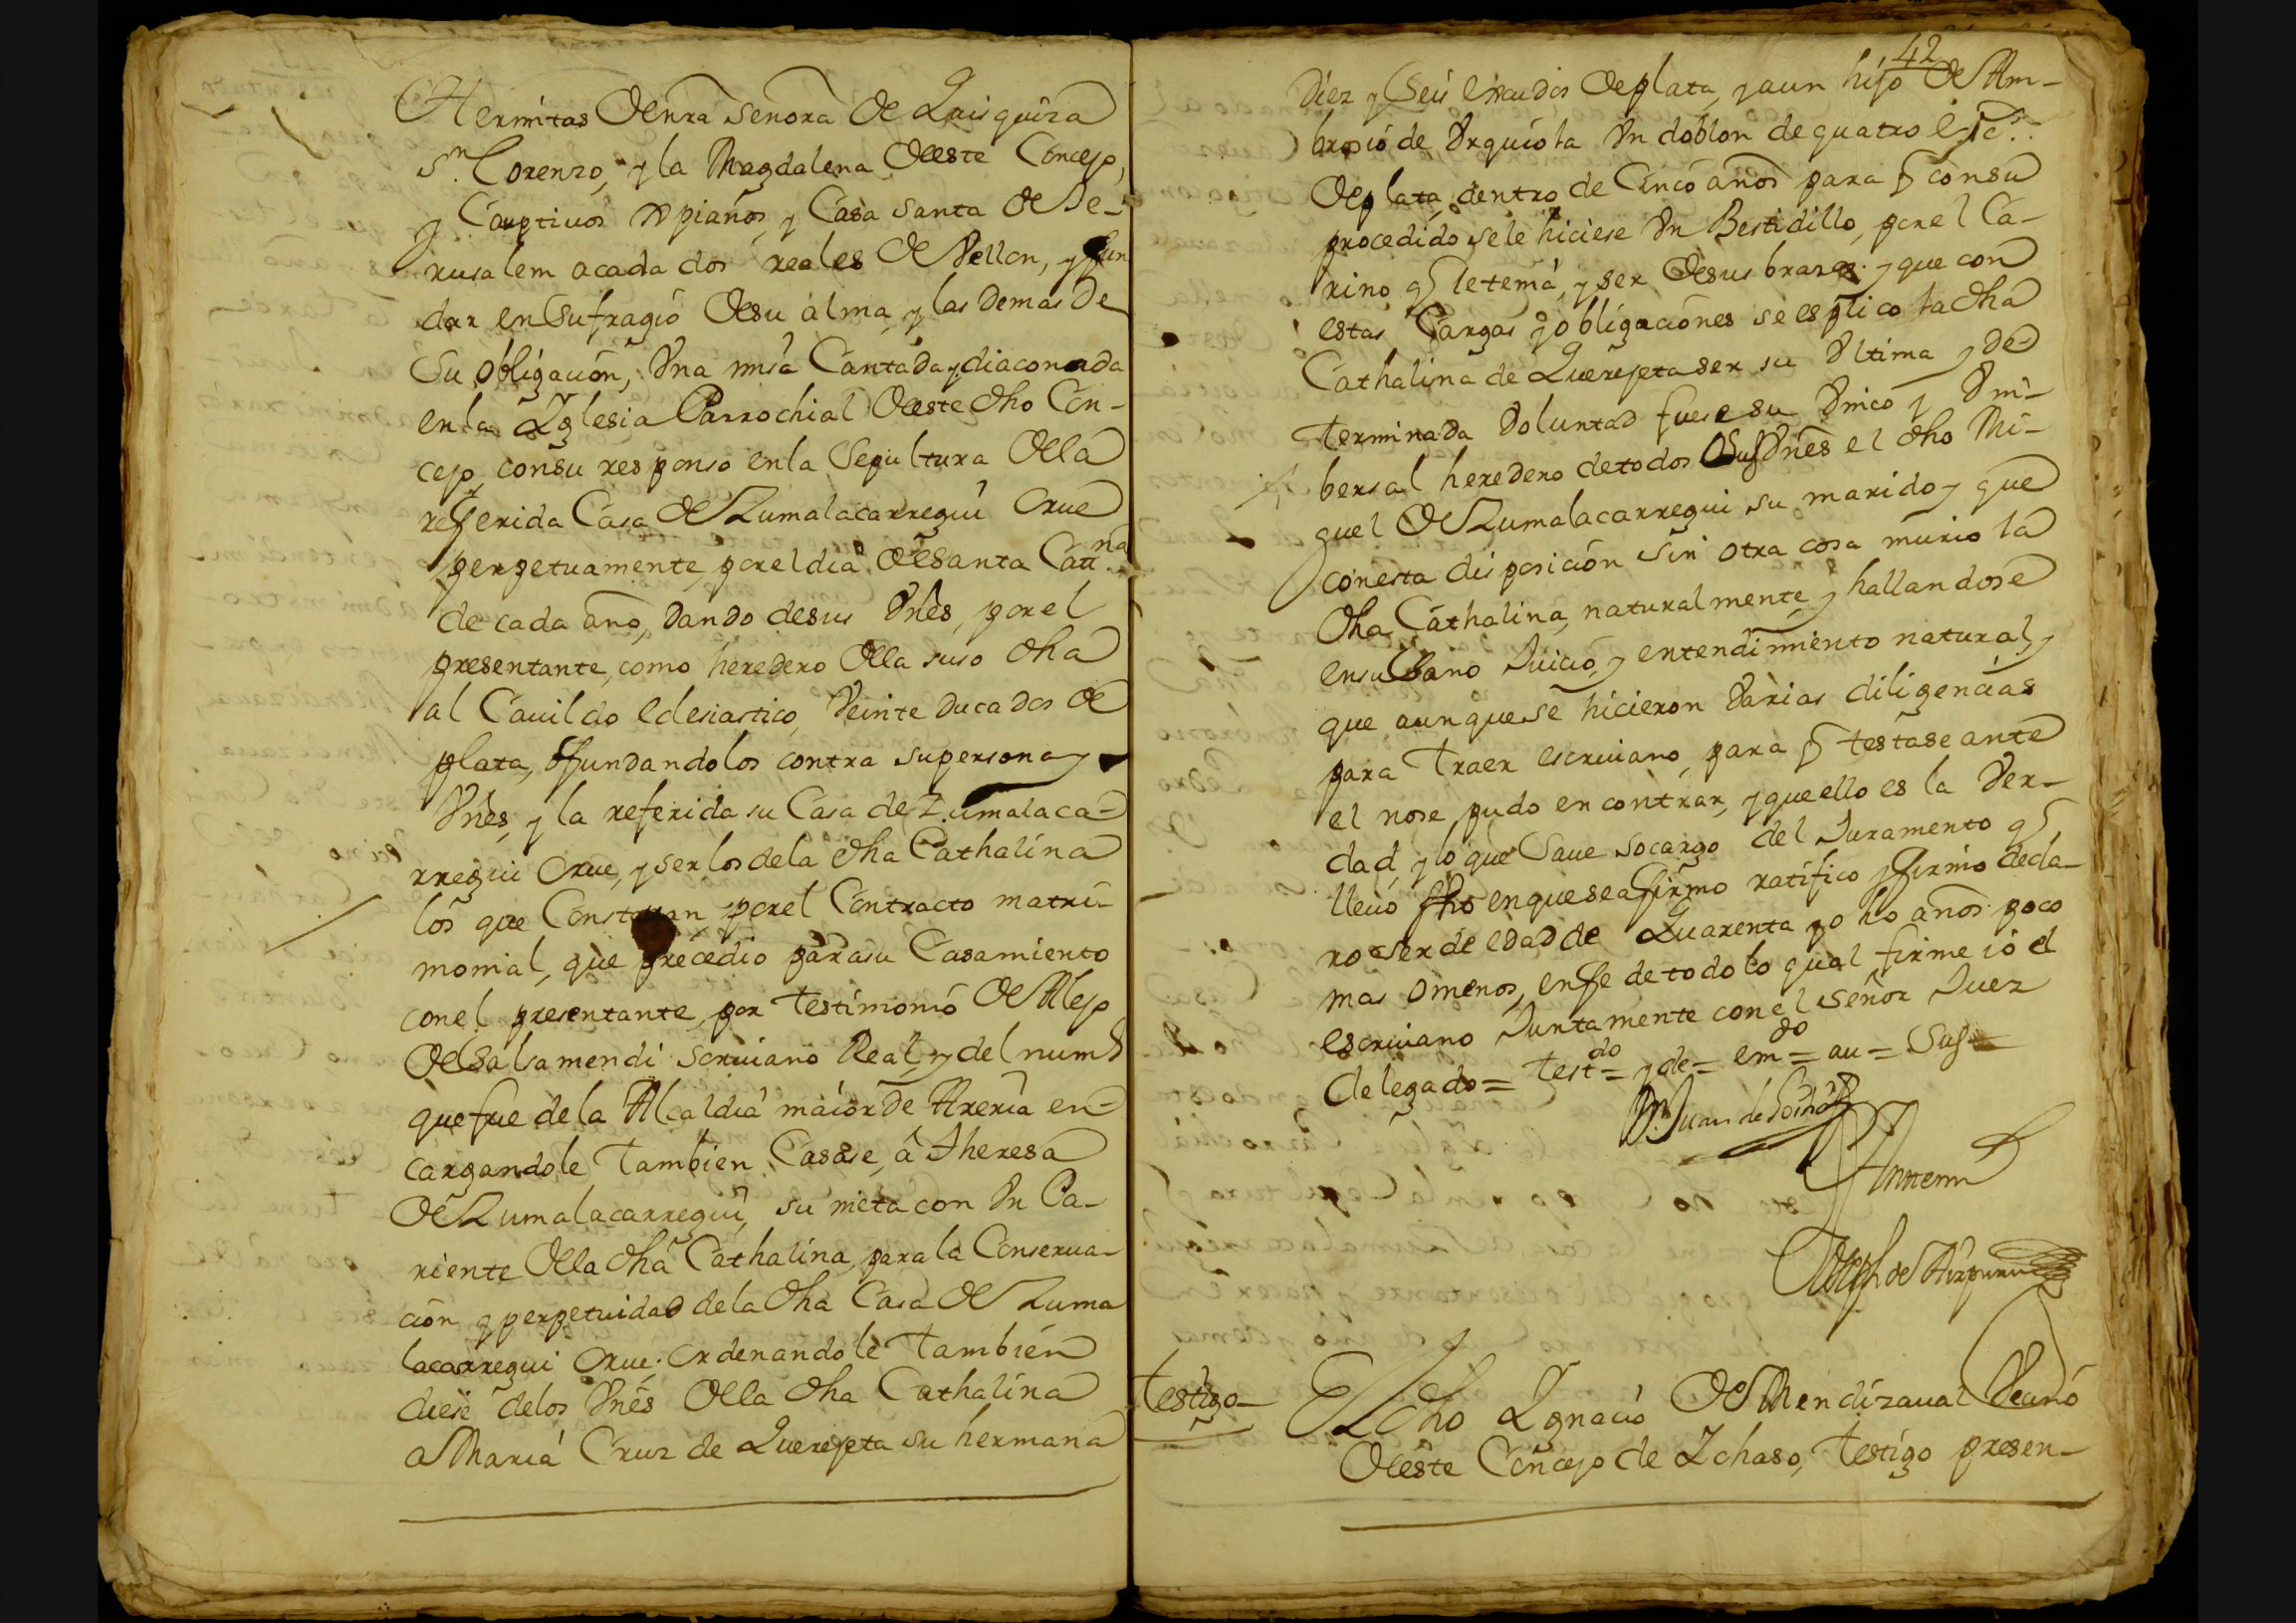 Hermitas de nra señora de Quisquiza
Sn. Lorenzo, y la Magdalena de este Concejo,
y Cauptivos xpianos, y Casa Santa de Je-
rusalem a cada dos reales de Vellon, y fun
dar en Sufragio de su alma, y las demas de
Su obligacion, Una misa Cantada y diaconada
en la Yglesia Parrochial de este dho Con-
cejo, con su responso en la Sepultura de la
referida Casa de Zumalacarregui Orue
perpetuamente, por el dia de Santa Catt.na
de cada año, dando de sus Vnes, por el
presentante, como heredero de la suso dha
al Cauildo Eclesiastico, Veinte Ducados de
plata, o fundandolos contra su persona, y
Vnes, y la referida su Casa de Zumalaca-
rregui Orue, y ser los de la dha Cathalina
los que Constauan por el Contracto matri-
monial, que precedio para su Casamiento
con el presentante, por testimonio de Alejo
de Salsamendi Scriuano Real, y del num.o
que fue de la Alcaldia maior de Areria en-
cargandole tambien Casase, á Theresa
de Zumalacarregui, su nieta con Vn Pa-
riente de la dha Cathalina, para la Conserua-
cion y perpetuidad de la dha Casa de Zuma
lacarregui Orue; ordenandole tambien
diese de los Vnes de la dha Cathalina
a Maria Cruz de Querejeta su hermana
42
Diez y Seis escudos de plata, y a un hijo de Am-
brosio de Vrquiola Vn doblon de quatro esc.s
de plata, dentro de Cinco años para q con su
procedido se le hiciese Vn Bestidillo, por el Ca-
rino q le tenia, y ser de sus brazos; y que con
estas Cargas y obligaciones se esplico la dha
Cathalina de Querejeta ser su Vltima y de-
terminada Voluntad fuese su Vnico y Vni-
bersal heredero de todos Sus Vnes el dho Mi-
guel de Zumalacarregui su marido y que
con esta disposicion Sin otra cosa murio la
dha Cathalina, naturalmente, y hallandose
en su Sano Juicio, y entendimiento natural, y
que aunque se hicieron Varias diligencias
para traer escriuano, para q testase ante
el no se pudo encontrar, y que ello es la Ver-
dad, y lo que Saue so cargo del Juramento q
lleuo fho en que se afirmo ratifico y firmo decla-
ro ser de edad de Quarenta y o ho años poco
mas o menos, en fe de todo lo qual firme io el
escriuano Juntamente con el Señor Juez
delegado = test.do = y de = em.do = au = Sus
Dn. Juan de
Antemi
Joseph de Aizpuru
Testigo
El dho Ygnacio de Mendizaual Vecino
de este Concejo de Ychaso, testigo presen-